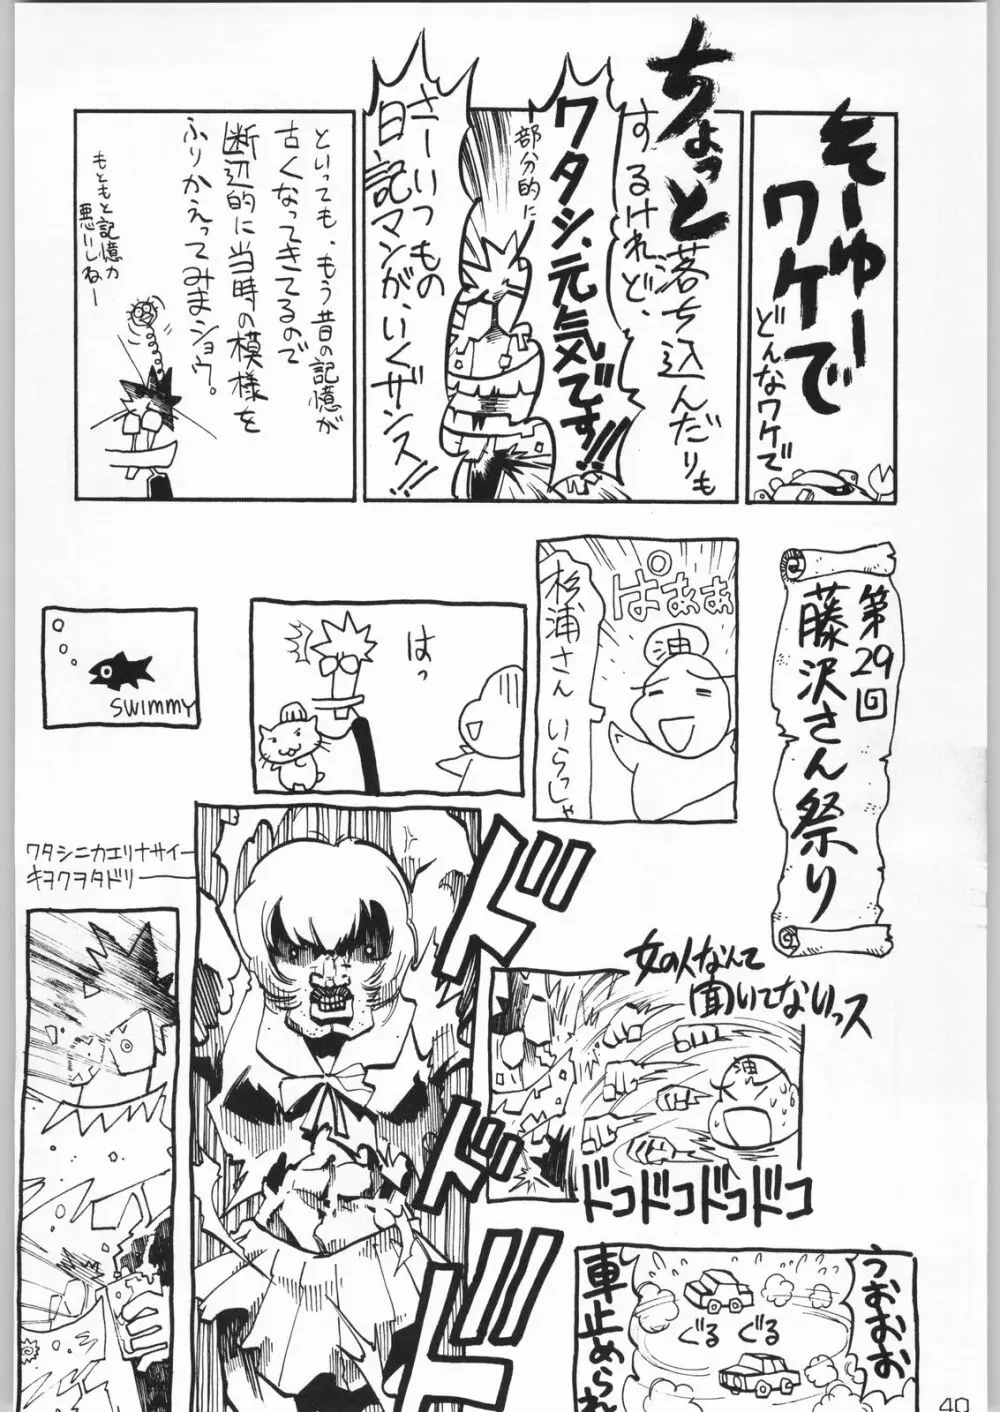 そーゆー
ワケで
どんなワケで
ちょっと
落ち込んだりも
するけれど、
ワタシ、元気です!!
部分的に
さーいつもの
日記マンガ、いくザンス!!
といっても、もう昔の記憶が
古くなってきてるので
断辺的に当時の模様を
ふりかえってみまショウ。
もともと記憶力
悪いしねー
第29回
藤沢さん祭り
ぱぁぁぁ
油
杉浦さんいらっしゃ
はっ
SWIMMY
ワタシニカエリナサイー
キヲクヲタドリ――
ドドド
女の人なんて
聞いてないっス
油
ドコドコドコドコ
うおおお
ぐる
ぐる
車止められ
40